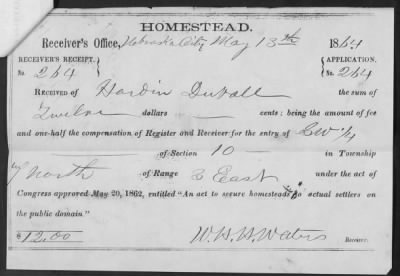 HOMESTEAD.
Receiver's Office, Nebraska City May 13th 1864
RECEIVER'S RECEIPT. APPLICATION.
No. 264 No. 264
RECEIVED OF Hardin Duvall the sum of
Twelve dollars — cents; being the amount of fee
and one-half the compensation of Register and Receiver for the entry of SW ¼
of Section 10 in Township
North of Range East under the act of
Congress approved May 20, 1862, entitled "An act to secure homesteads to actual settlers on
the public domain."
$12.00 W. H. H. Waters Receiver.